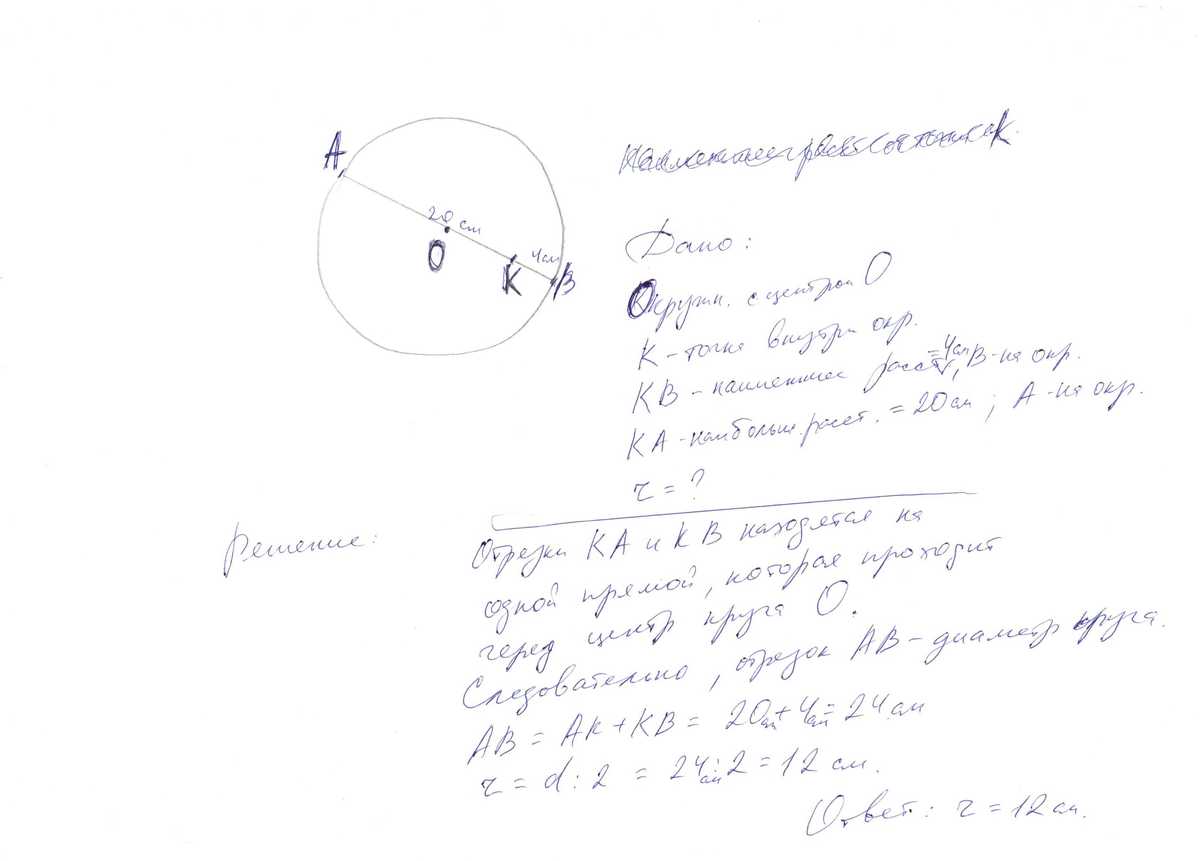 A
20 см
O
K
4см
B
Наименьшее расст от точки K.
Дано:
Окружн. с центром O
K - точка внутри окр.
KB - наименьшее расст. =4см, B - на окр.
KA - наибольш. расст. = 20см ; A - на окр.
r = ?
Решение:
Отрезки KA и KB находятся на
одной прямой, которая проходит
через центр круга O.
Следовательно, отрезок AB - диаметр круга.
AB = AK + KB = 20см + 4см = 24 см
r = d : 2 = 24см : 2 = 12 см.
Ответ: r = 12см.